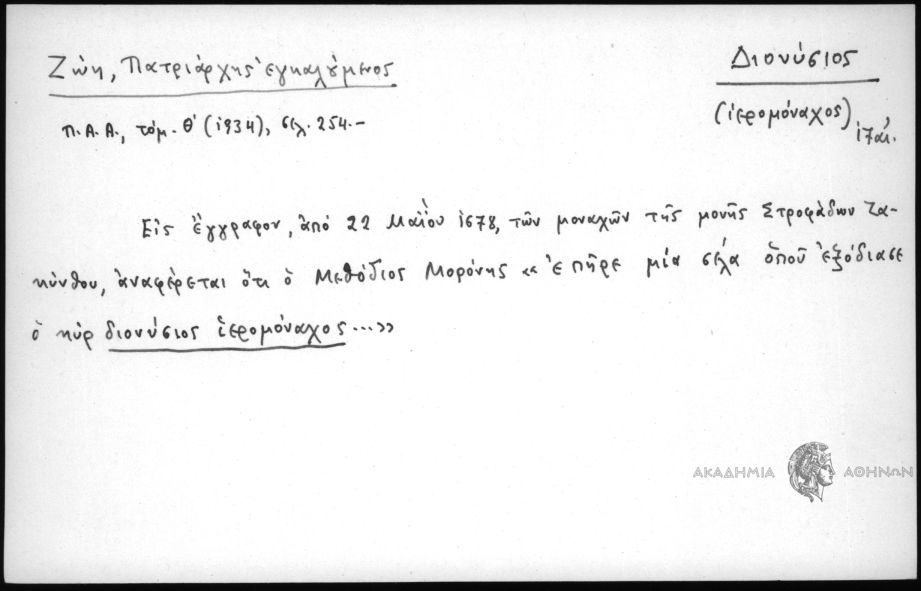 Ζώη, Πατριάρχης ἐγκαλούμενος
Διονύσιος
Π.Α.Α., τόμ. Θ' (1934), σελ. 254.-
(ἱερομόναχος)
17 αἰ.
Εἰς ἔγγραφον, ἀπό 22 Μαΐου 1678, τῶν μοναχῶν τῆς μονῆς Στροφάδων Ζα-
κύνθου, ἀναφέρεται ὅτι ὁ Μεθόδιος Μορόνης «ἐπῆρε μία σέλα ὁποῦ ἐξόδιασε
ὁ κύρ διονύσιος ἱερομόναχος...»
ΑΚΑΔΗΜΙΑ ΑΘΗΝΩΝ